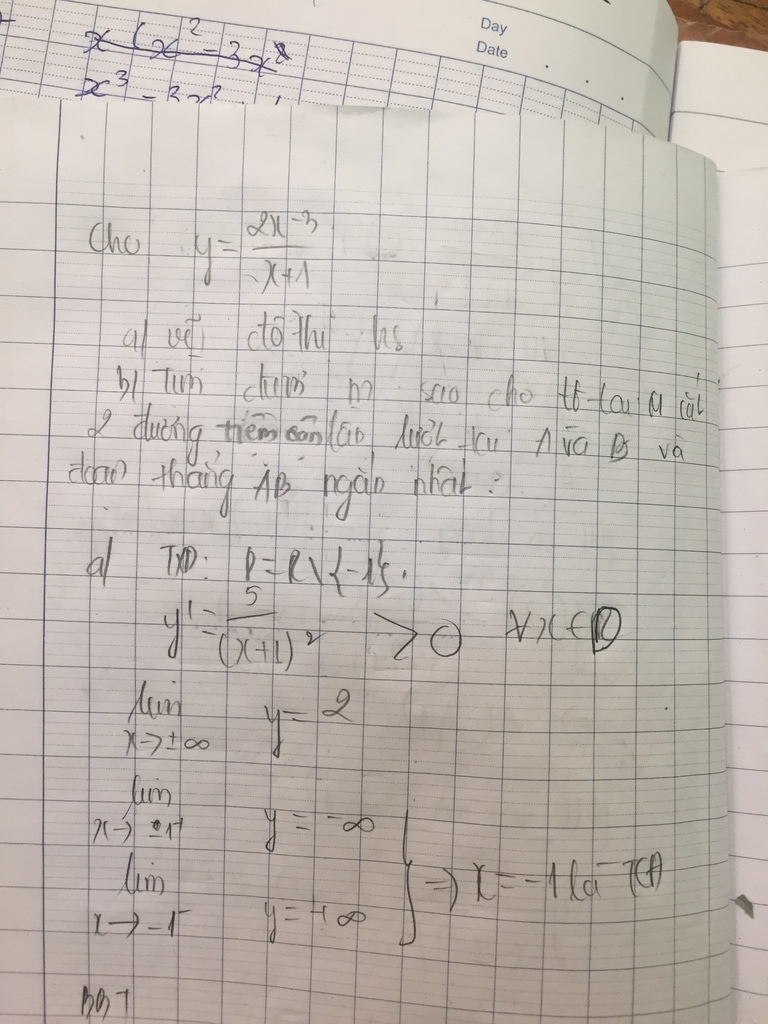 Day
Date
x(x² - 3x²
x³ - 3x²
Cho y = \frac{2x-3}{x+1}
a) vẽ đồ thị hs
b) Tìm điểm M sao cho tt tại M cắt
2 đường tiệm cận lần lượt tại A và B và
đoạn thẳng AB ngắn nhất.
a) TXĐ: D = R\{-1}.
y' = \frac{5}{(x+1)²} > 0 ∀x ∈ D
lim y = 2
x → ±∞
lim y = -∞
x → -1⁺
⇒ x = -1 là TCĐ
lim y = +∞
x → -1⁻
BBT